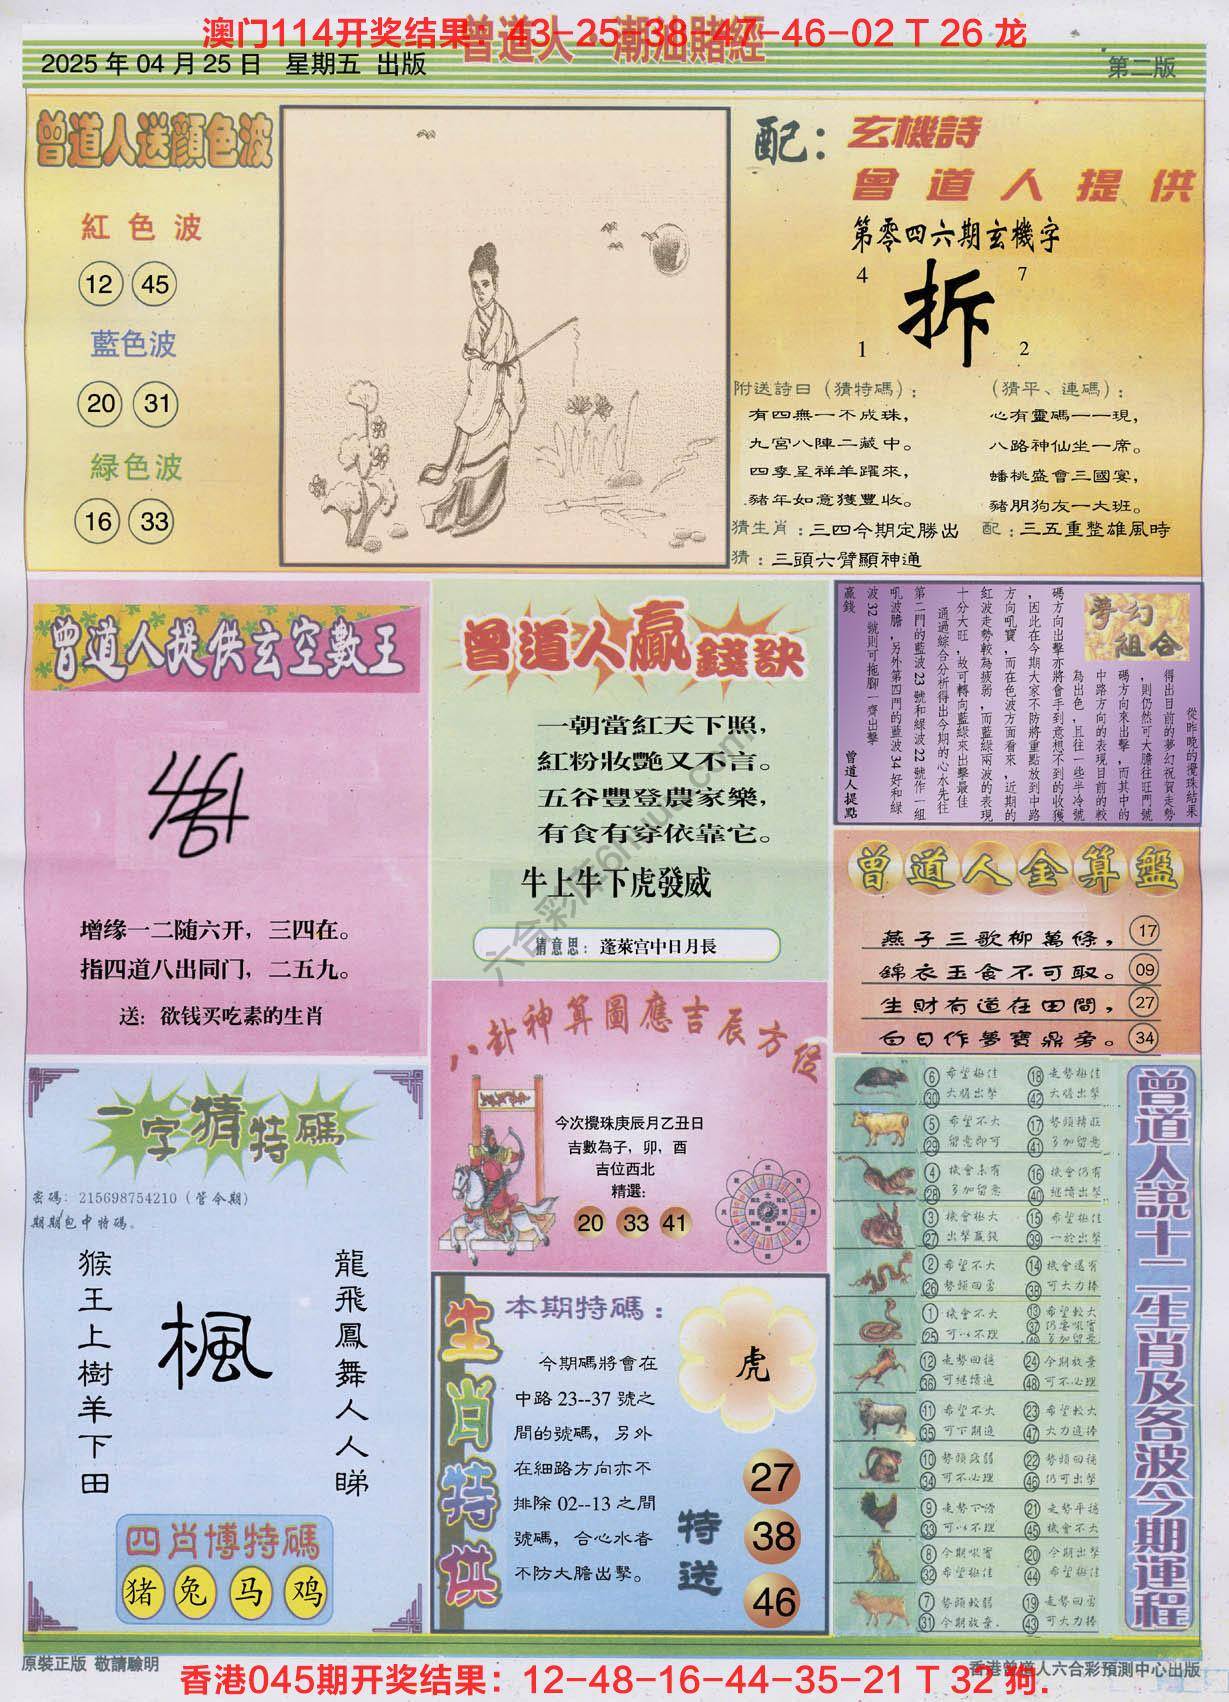 澳门114开奖结果：43-25-38-47-46-02 T 26 龙
曾道人·潮汕賭經
2025 年 04 月 25 日 星期五 出版
第二版
曾道人送顏色波
紅色波
12 45
藍色波
20 31
緑色波
16 33
配：玄機詩
曾道人提供
第零四六期玄機字
4 7
拆
1 2
附送詩日（猜特碼）：
有四無一不成珠，
九宮八陣二藏中。
四季呈祥羊躍來，
豬年如意獲豐收。
（猜平、連碼）：
心有靈碼一一現，
八路神仙坐一席。
蟠桃盛會三國宴，
豬朋狗友一大班。
猜生肖：三四今期定勝出
配：三五重整雄風時
猜：三頭六臂顯神通
曾道人提供玄空數王
增缘一二随六开，三四在。
指四道八出同门，二五九。
送：欲钱买吃素的生肖
曾道人贏錢訣
一朝當紅天下照，
紅粉妝艷又不言。
五谷豐登農家樂，
有食有穿依靠它。
牛上牛下虎發威
猜意思：蓬萊宫中日月長
夢幻組合
從昨晚的攪珠結果
得出目前的夢幻祝賀走勢
，則仍然可大膽往旺門號
碼方向來出擊，而其中的
中路方向的表現目前的較
為出色，且往一些半冷號
碼方向出擊亦將會手到意想不到的收獲
，因此在今期大家不防將重點放到中路
方向吼寶，而在色波方面看來，近期的
紅波走勢較為疲弱，而藍綠兩波的表現
十分大旺，故可轉向藍綠來出擊最佳
通過綜合分析得出今期的心水先往
第二門的藍波23號和綠波22號作一組
吼波膽，另外第四門的藍波34好和綠
波32號則可拖腳一齊出擊
贏錢
曾道人提點
曾道人金算盤
燕子三歌柳萬條， 17
錦衣玉食不可取。 09
生財有道在田間， 27
白日作夢寶鼎旁。 34
八卦神算圖應吉辰方位
今次攪珠庚辰月乙丑日
吉數為子，卯，酉
吉位西北
精選：
20 33 41
一字猜特碼
密碼：215698754210（管今期）
期期包中特碼。
猴王上樹羊下田
楓
龍飛鳳舞人人睇
四肖博特碼
猪 兔 马 鸡
生肖特供
本期特碼：
今期碼將會在
中路 23--37 號之
間的號碼，另外
在細路方向亦不
排除 02--13 之間
號碼，合心水者
不防大膽出擊。
虎
特送
27
38
46
曾道人説十二生肖及各波今期運程
6 希望極佳 18 走勢極佳
30 大膽出擊 42 大膽出擊
5 希望不大 17 勢頭轉旺
29 留意即可 41 多加留意
4 機會未有 16 機會仍有
28 多加留意 40 繼續出擊
3 機會極大 15 希望極佳
27 出擊贏錢 39 一於出擊
2 希望不大 14 機會還有
26 勢頭回勇 38 可大力捧
1 機會不大 13 希望較大
37 仍要吼實
25 可以不理 49 多加留意
12 走勢回穩 24 今期放棄
36 可繼續追 48 可不必理
11 希望不大 23 希望較大
35 可下期追 47 大力追捧
10 勢頭疲弱 22 勢頭回穩
34 可不必理 46 仍可出擊
9 走勢下滑 21 走勢平穩
33 可以不理 45 機會不大
8 今期吼實 20 今期出擊
32 希望極佳 44 希望極佳
7 勢頭較弱 19 走勢回勇
31 今期放棄. 43 可大力捧
六合彩库6hu6.com
原裝正版 敬請驗明
香港曾道人六合彩預測中心出版
香港045期开奖结果：12-48-16-44-35-21 T 32 狗.